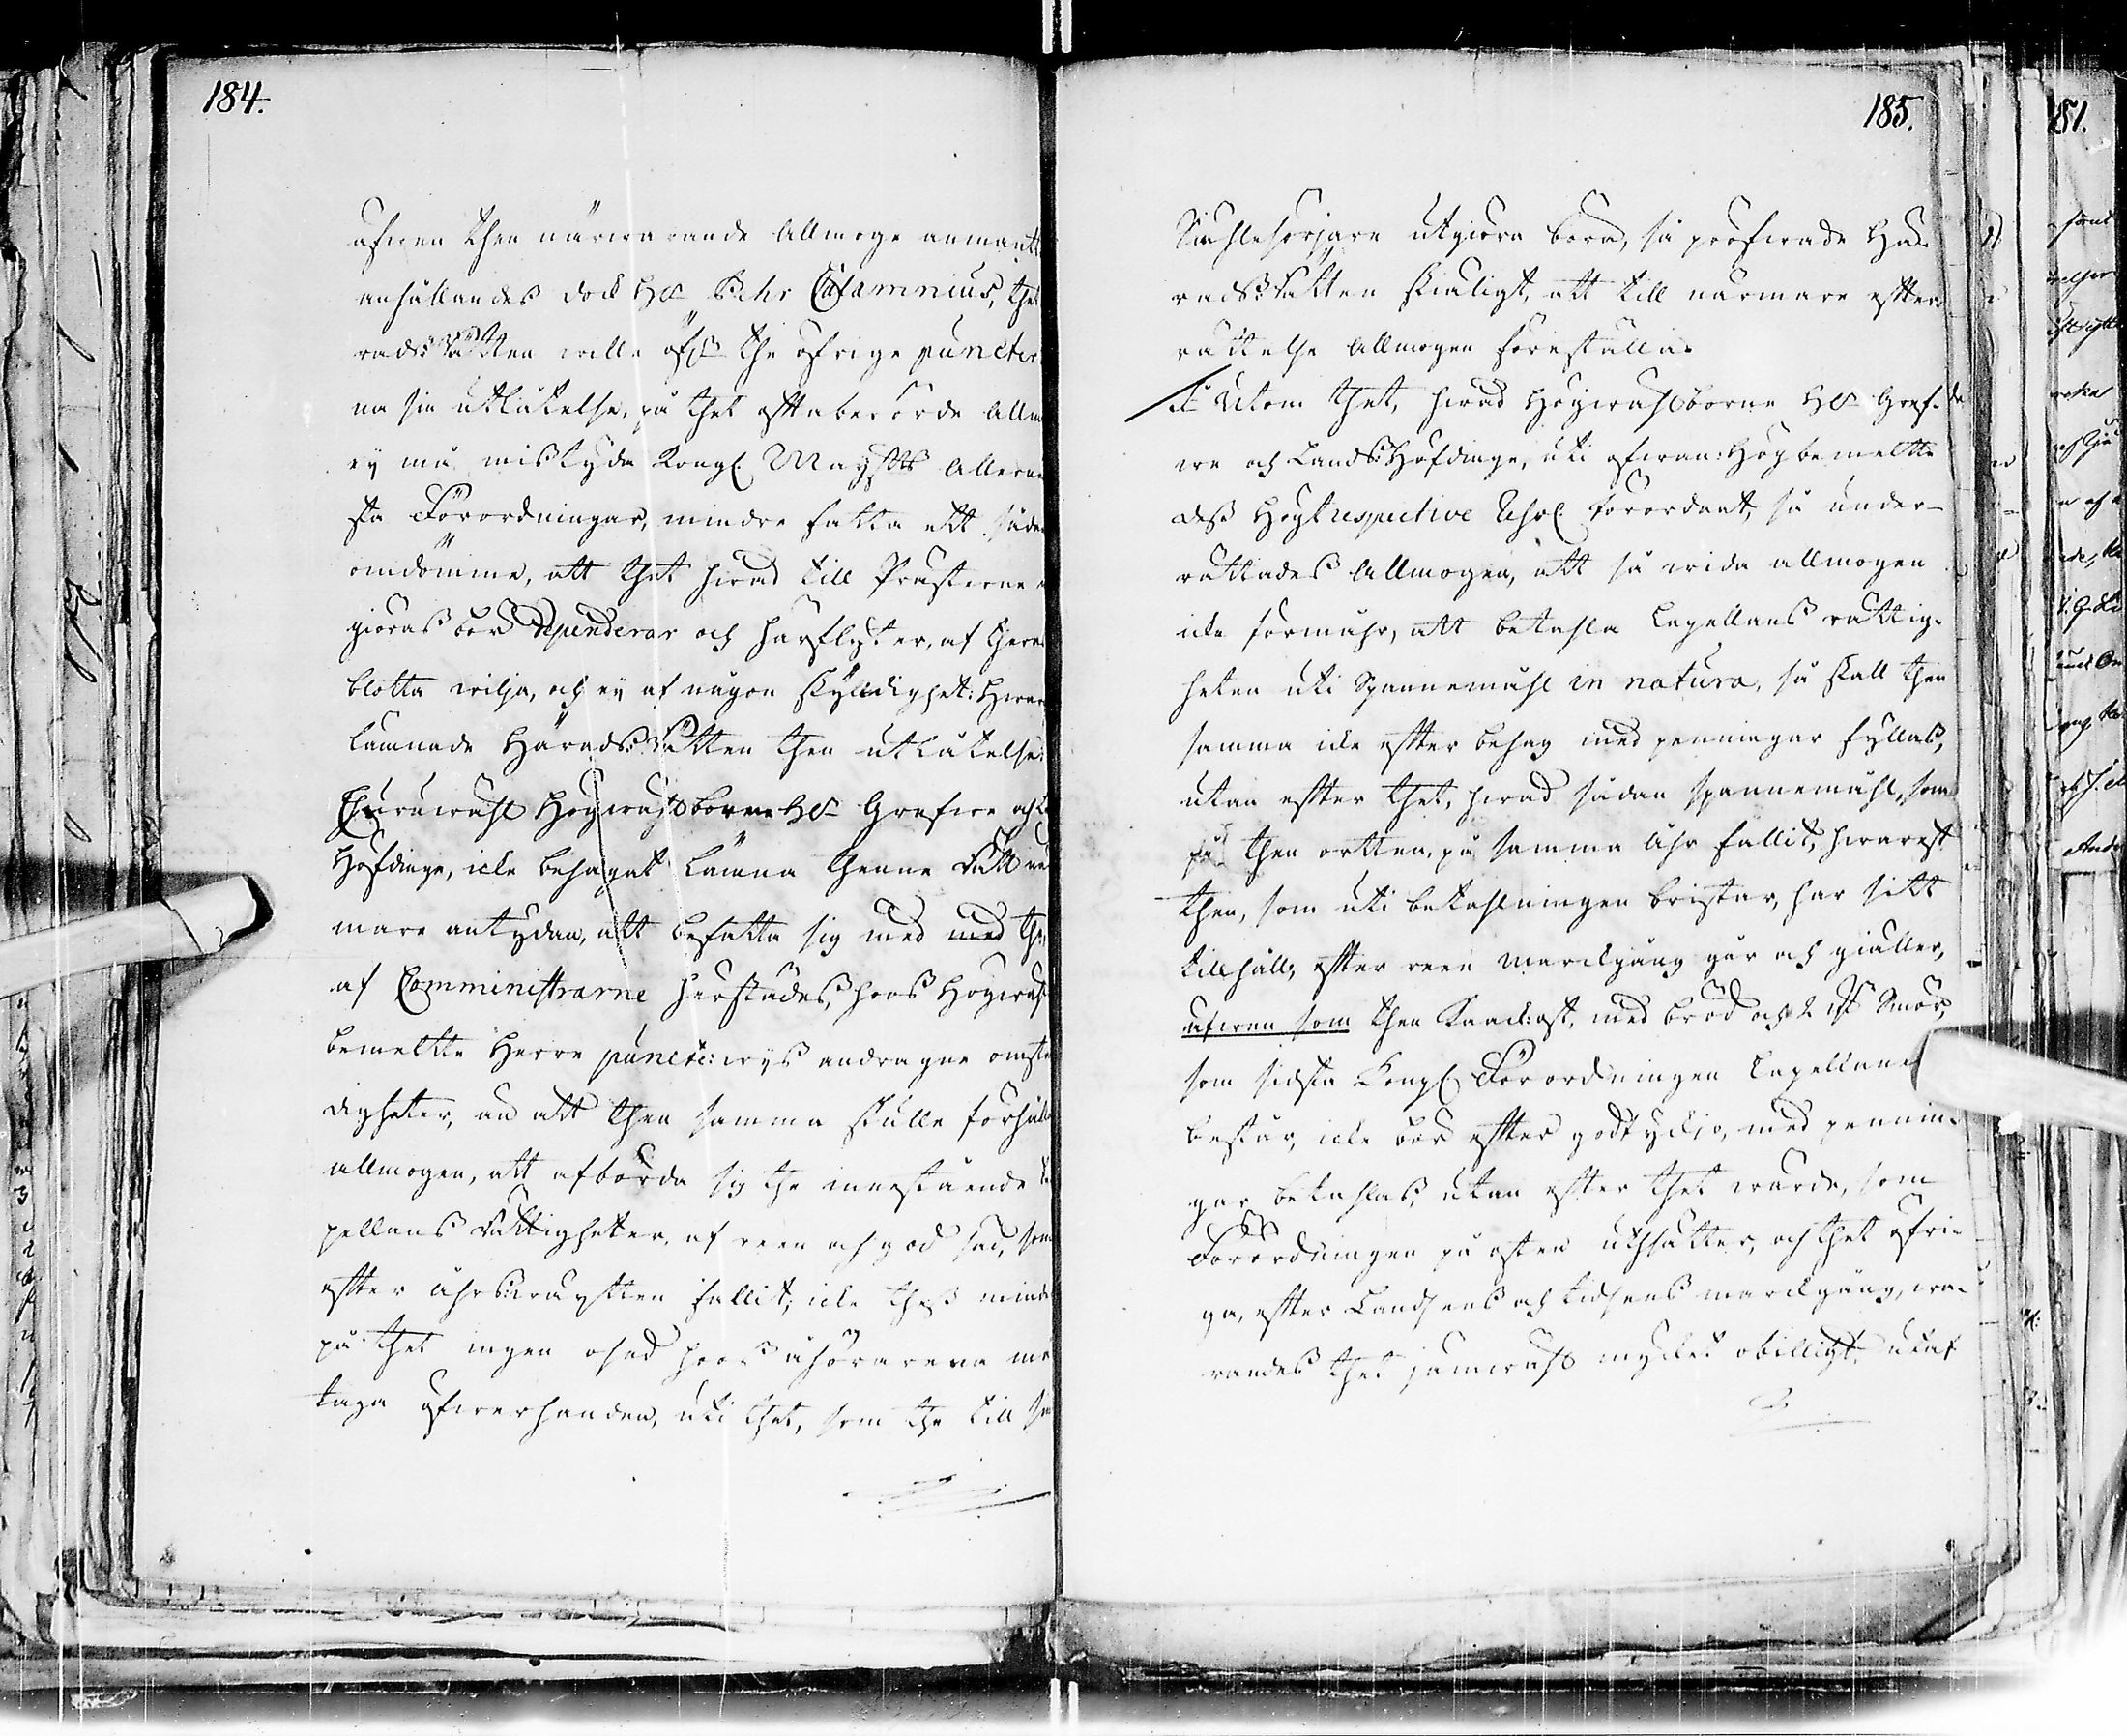 184.
äfwen then närwarande Allmoge anmantt
anhållandes doch H:r Pehr Calamnius, thet
radz Rätten wille öfwer the öfrige puncter
na sin utlåtelse, på thet offtaberörde Allm
ey må misstyda Kongl. Mayst:ts Allerna
sta Förordningar, mindre fatta ett sådan
omdömme, att thet hwad till Prästerne
giöras bör dependerar och härflyter, af theras
blotta wilja, och ey af någon skyldighet: Hwar
lämnade Härads Rätten then utlåtelse:
Ehuruwähl Högwählborne H:r Grefwe och
Höfdinge, icke behagat lämna thenne Rätt när
mare antydan, att befatta sig med med the
af Comministrarne härstädes, hoos Högwähl
bemeltte Herre puncte: wijs andragne omstän
digheter, än att then samma skulle förhålla
allmogen, att afbörda sig the innestående Ca
pellans Rättigheter, af reen och god säd, som
effter åhrswäxten fallit; icke thess mindre
på thet ingen osed hoos åhörarena må
taga öfwerhanden, uti thet, som the till sin
185.
Siählesörjare utgiöra böra, så pröfwade Hä-
rads Rätten skiäligt, att till närmare effter-
rättelse Allmogen föreställa.
Utom thet, hwad Högwählborne H:r Gref-
we och Lands Höfdinge, uti ofwan: Högbemeltte
dess Högtrespective Resol. förordnat, så under-
rättades Allmogen, att så wida allmogen
icke förmåhr, att betahla Capellans rättig-
heten uti Spannemåhl in natura, så skall then
samma icke effter behag med penningar fyllas,
utan effter thet, hwad sådan spannemåhl, som
på then ortten, på samma åhr fallit, hwarest
then, som uti betahlningen brister, har sitt
tillhåll, effter reen marckgång går och giäller,
äfwen som then Kaack: ost, med bröd och 2 ℔ Smör,
som sidsta Kongl. Förordningen Capellane
består, icke bör effter godtyckjo, med pennin-
gar betahlas, utan effter thet wärde, som
Förordningen på osten utsätter, och thet öfri-
ga, effter Landsens och tidsens marckgång, wa-
randes thet jemwähl mycket obilligt, utaf